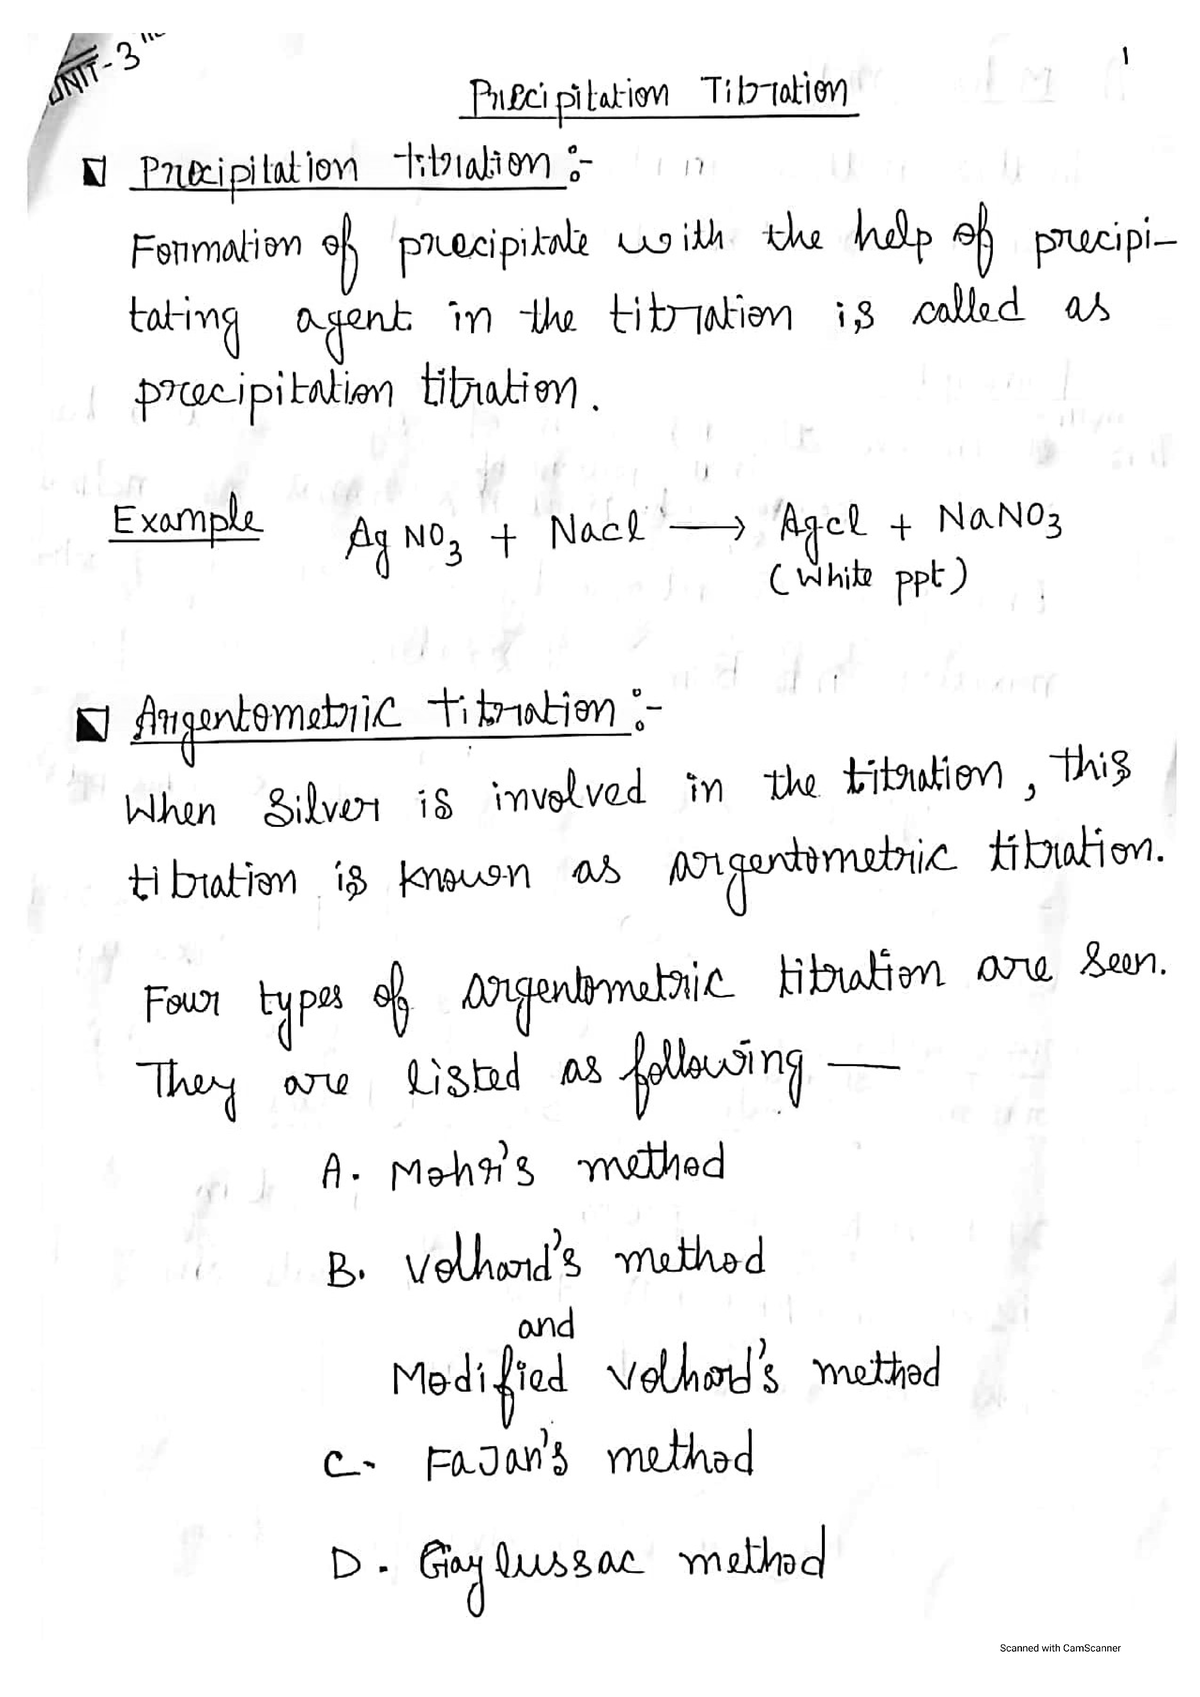 UNIT-3
1
Precipitation Titration
Precipitation titration :-
Formation of precipitate with the help of precipi-
tating agent in the titration is called as
precipitation titration.
Example AgNO3 + Nacl → Agcl + NaNO3
(White ppt)
Argentometric titration :-
When Silver is involved in the titration, this
titration is known as argentometric titration.
Four types of argentometric titration are seen.
They are listed as following —
A. Mohr's method
B. Volhard's method
and
Modified Volhard's method
C. Fajan's method
D. Gaylussac method
Scanned with CamScanner